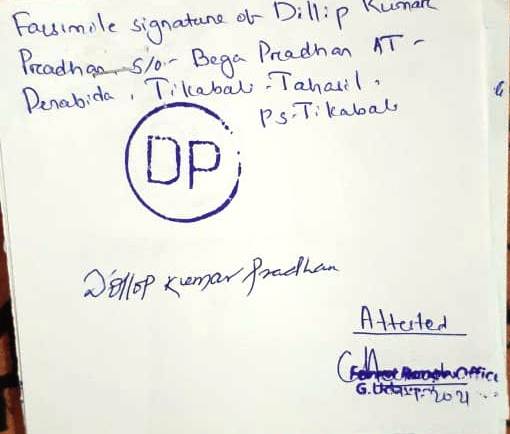 Facsimole signature of Dillip Kumar
Pradhan, S/o:- Bega Pradhan AT-
Penabida, Tikabali-Tahasil,
PS-Tikabali
DP
Dillop Kumar Pradhan
Attested
Office
G. 2021